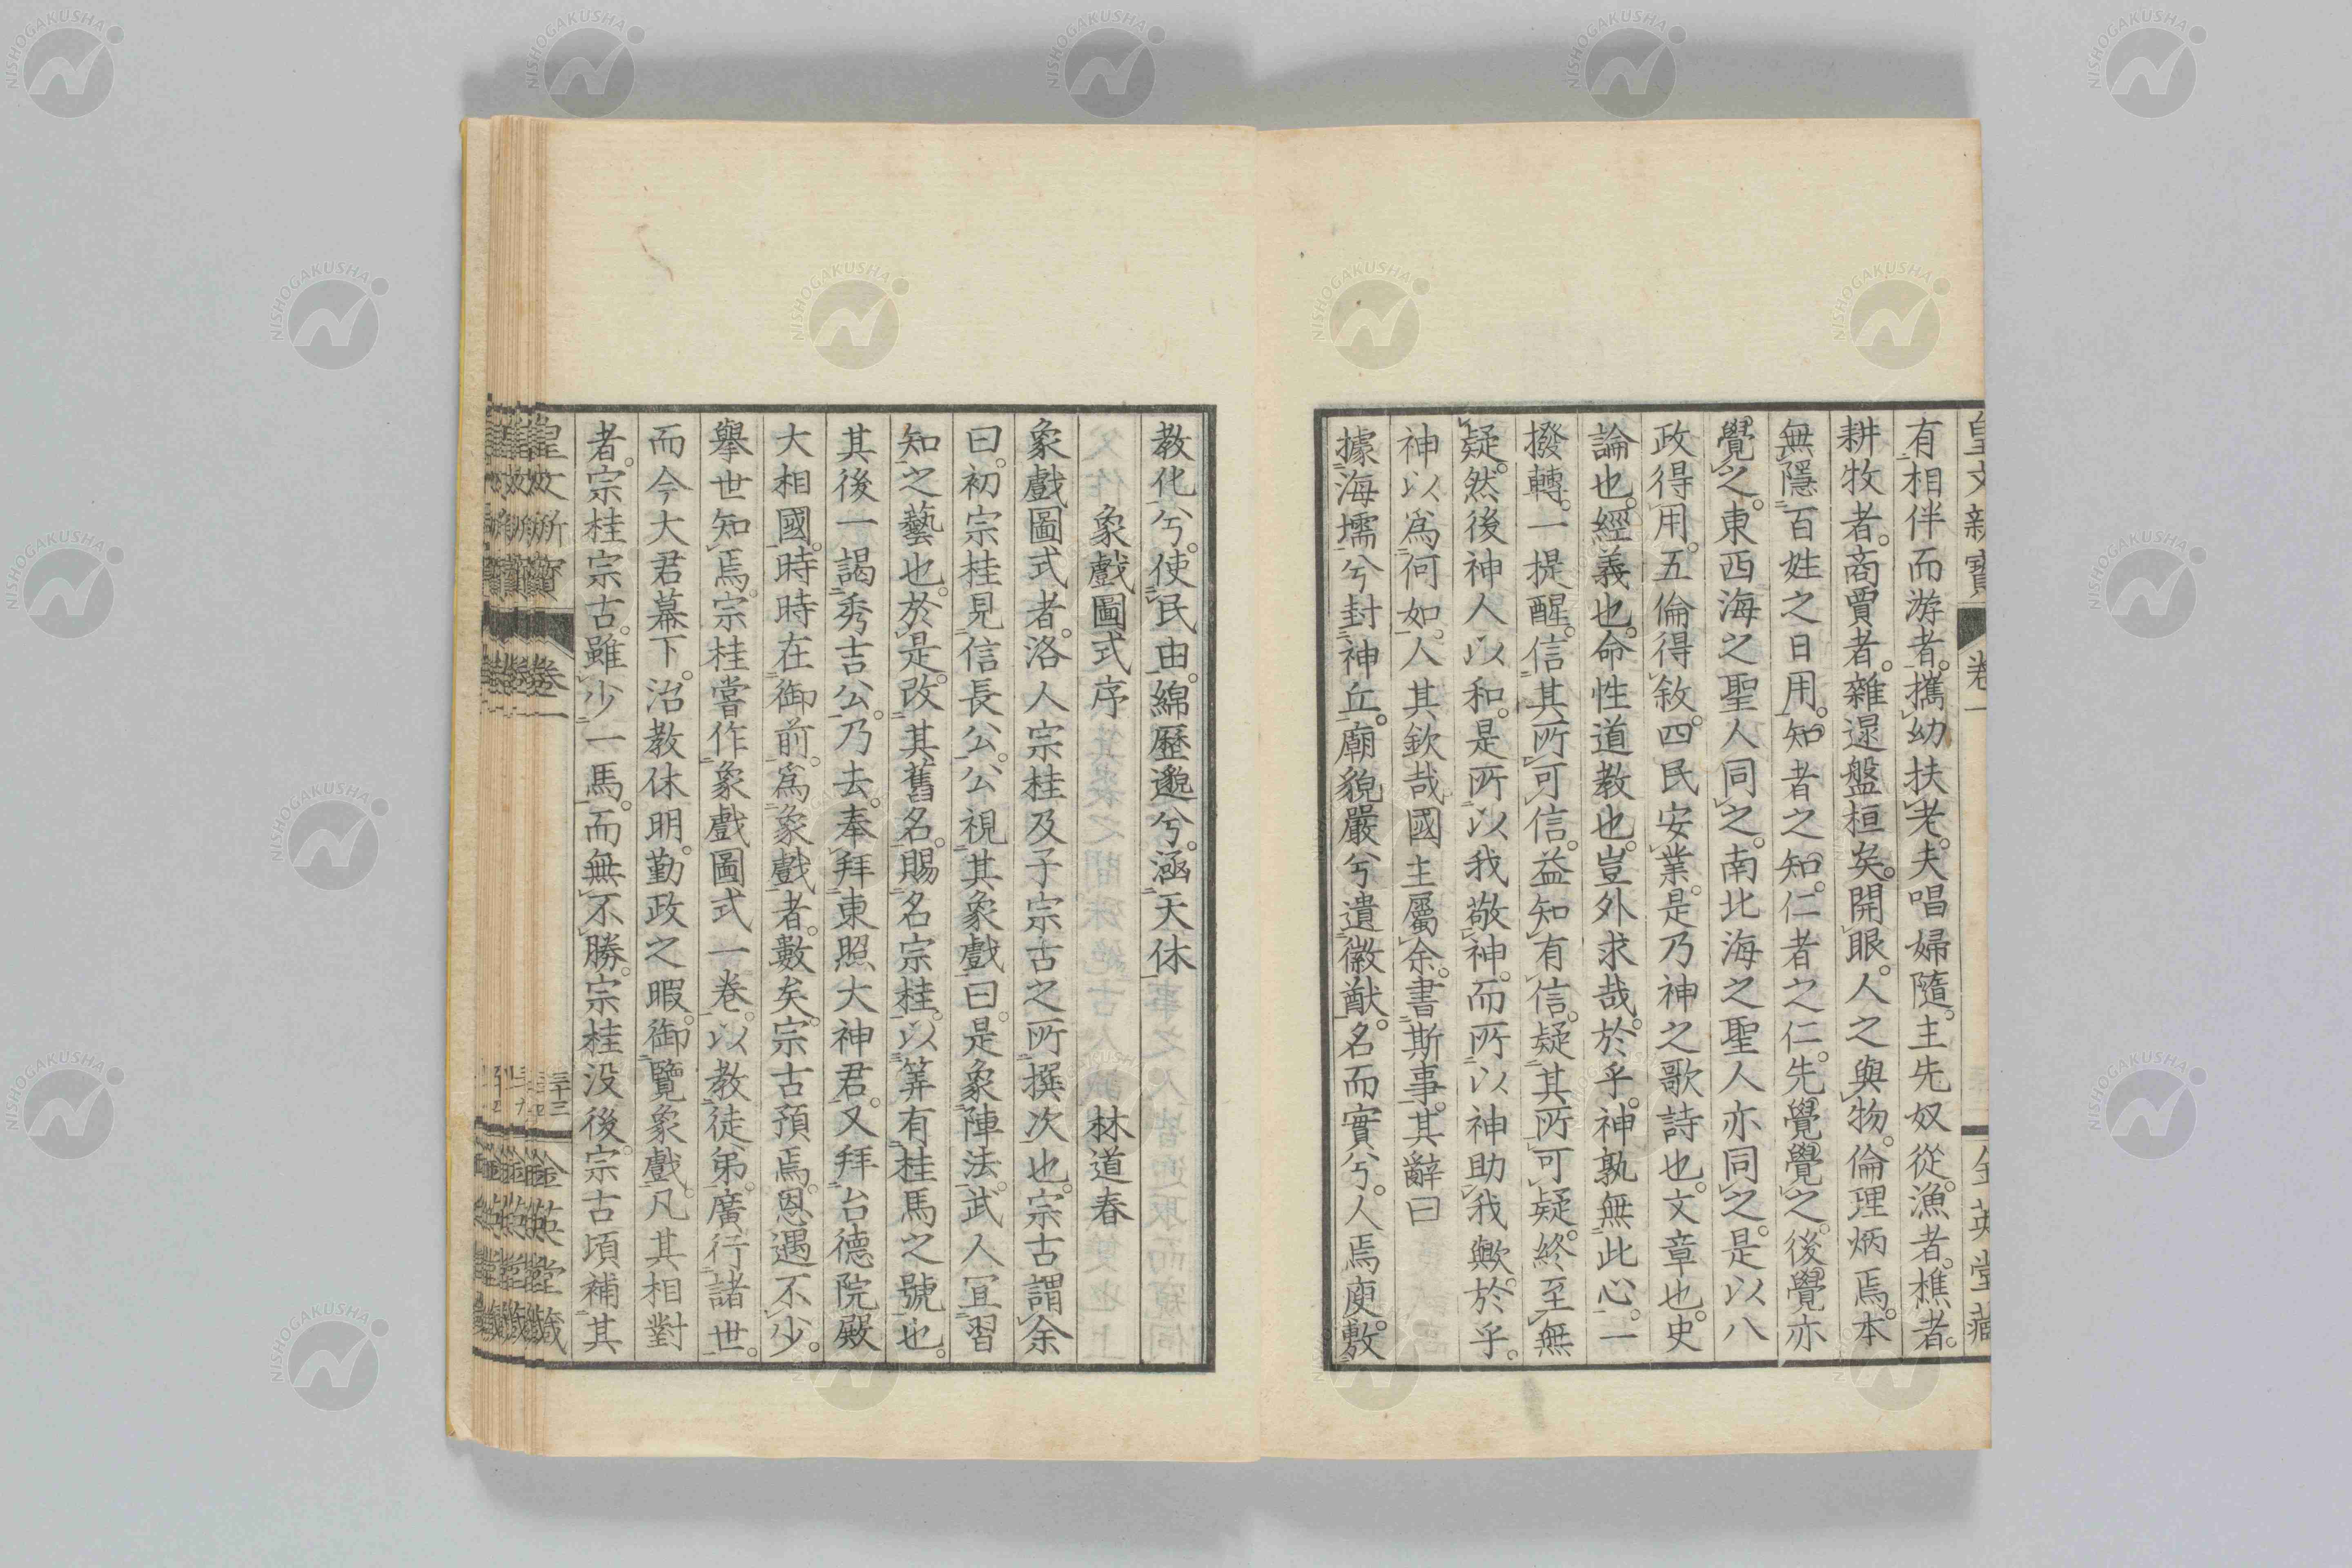 皇文新寶 卷一 金英堂藏
有相伴而游者。攜幼扶老。夫唱婦隨。主先奴從。漁者。樵者。
耕牧者。商賈者。雜遝盤桓矣。開眼。人之與物。倫理炳焉。本
無隱百姓之日用。知者之知。仁者之仁。先覺覺之。後覺亦
覺之。東西海之聖人同之。南北海之聖人亦同之。是以八
政得用。五倫得敘。四民安業。是乃神之歌詩也。文章也。史
論也。經義也。命性道教也。豈外求哉。於乎。神孰無此心。一
撥轉。一提醒。信其所可信。益知有信。疑其所可疑。終至無
疑。然後神人以和。是所以我敬神。而所以神助我歟。於乎。
神以爲何如。人其欽哉。國主屬余。書斯事。其辭曰
據海壖兮封神丘。廟貌嚴兮遺徽猷。名而實兮。人焉廋。敷
教化兮。使民由。綿歷邈兮。涵天休
象戲圖式序 林道春
象戲圖式者。洛人宗桂及子宗古之所撰次也。宗古謂余
曰。初宗桂見信長公。公視其象戲曰。是象陣法。武人宜習
知之藝也。於是。改其舊名。賜名宗桂。以筭有桂馬之號也。
其後一謁秀吉公。乃去。奉拜東照大神君。又拜台德院殿
大相國。時時在御前。爲象戲者。數矣。宗古預焉。恩遇不少。
擧世知焉。宗桂嘗作象戲圖式一卷。以教徒弟。廣行諸世。
而今大君幕下。沼教休明。勤政之暇。御覽象戲。凡其相對
者。宗桂宗古。雖少一馬。而無不勝。宗桂没後。宗古頃補其
皇文 卷一 三十三 金英堂藏
NISHOGAKUSHA